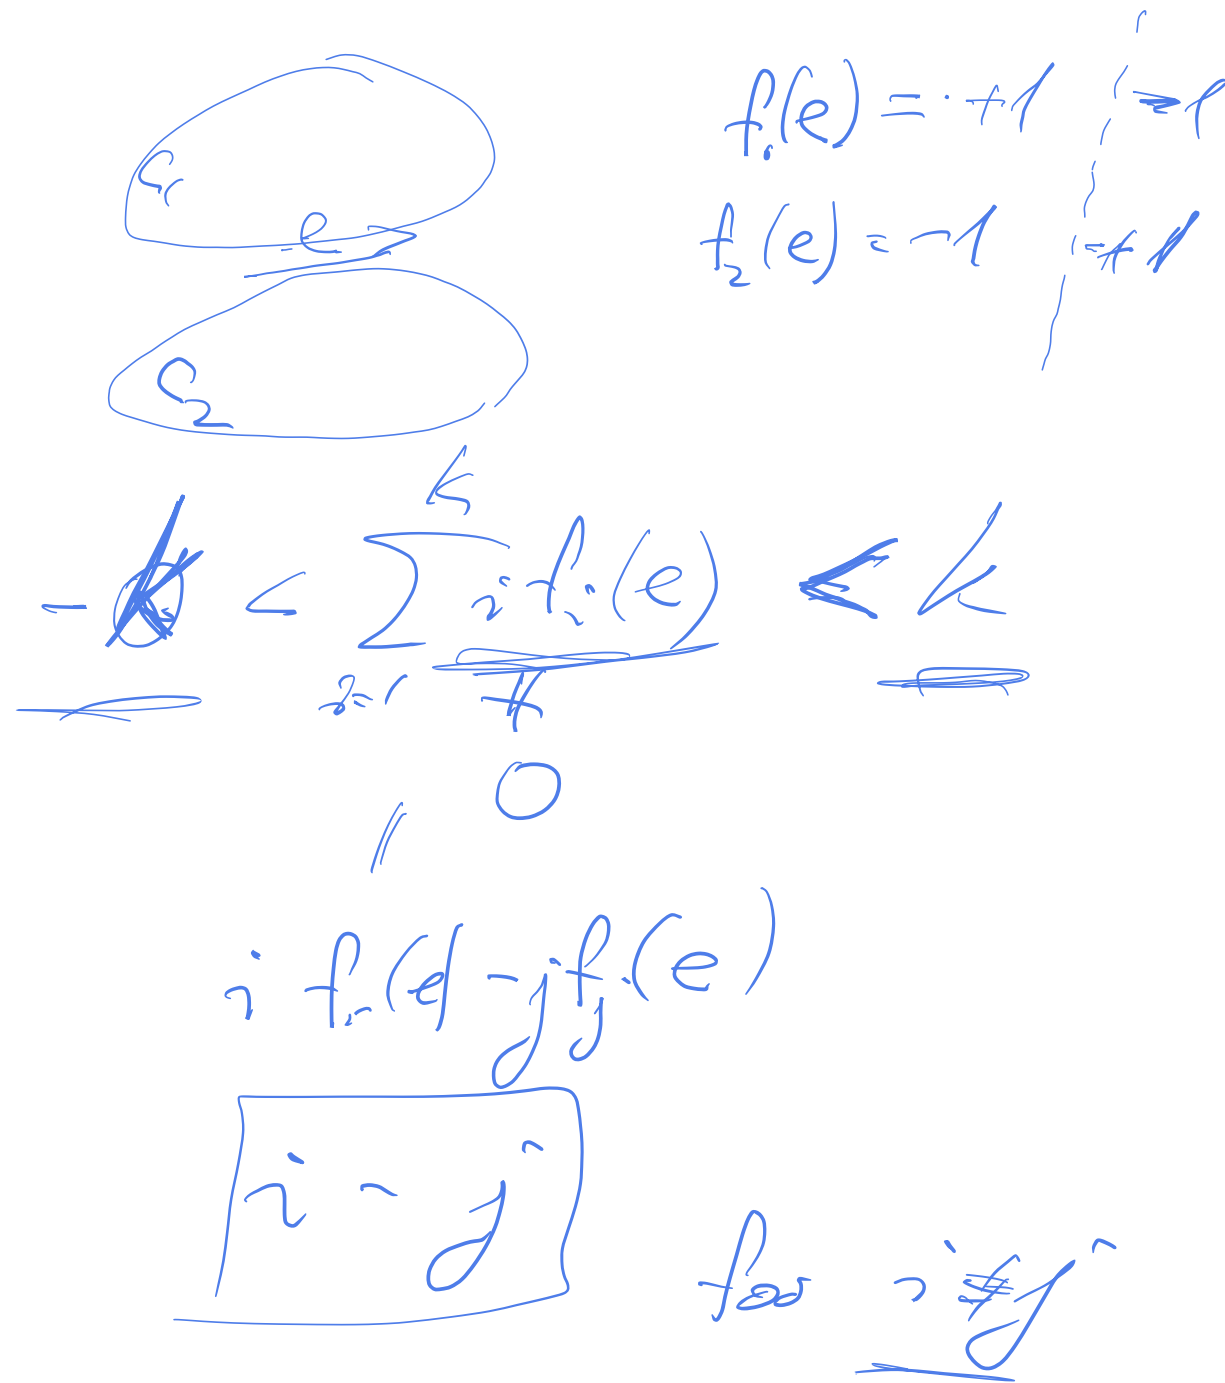 f₁(e) = +1 | -1
C₁
e
f₂(e) = -1 | +1
C₂
-k < ∑_{i=1}^{k} i fᵢ(e) < k
≠
0
||
i fᵢ(e) - j fⱼ(e)
i - j
for i ≠ j